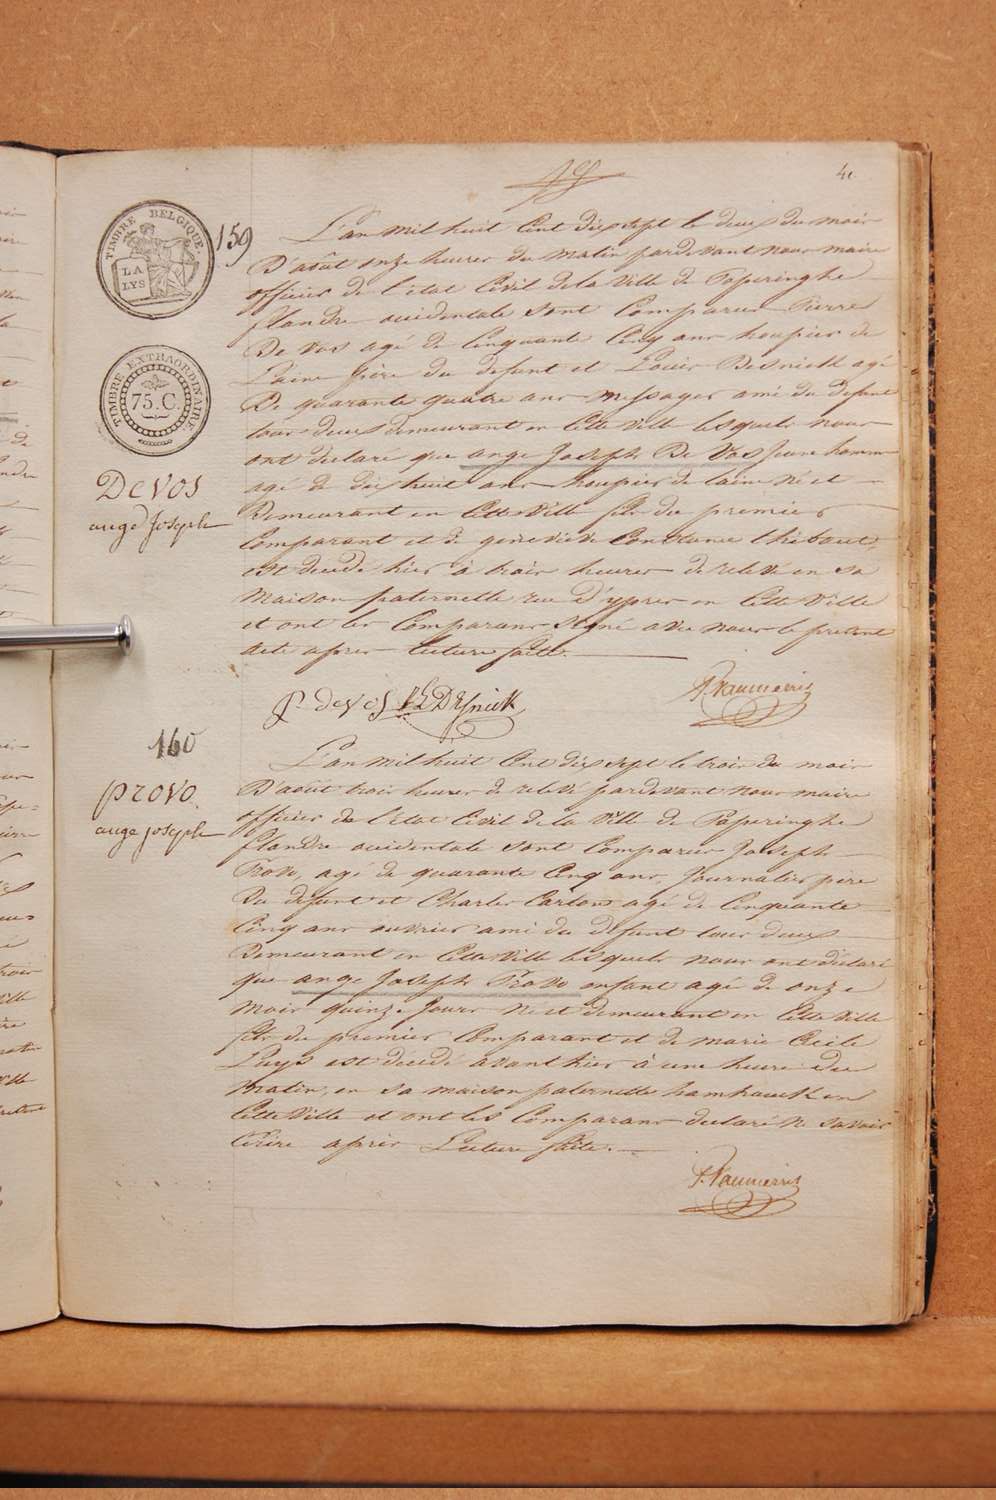 41
TIMBRE BELGIQUE.
LA
LYS
159
L'an mil huit Cent dix sept le deux du mois
D'août onze heures du matin pardevant nous maire
officier de l'état Civil de la Ville de Poperinghe
flandre occidentale sont Comparus Pierre
De Vos agé de Cinquante Cinq ans houpier de
Laine père du defunt et Louis Desnick agé
De quarante quatre ans messager ami du defunt
tous deux demeurant en Cette Ville lesquels nous
ont declaré que ange Joseph De Vos Jeune homme
agé de dix huit ans houpier de laine né et
Demeurant en Cette Ville fils du premier
Comparant et de geneviève Constance thibaut,
est decedé hier à trois heures de relevé en sa
Maison paternelle rue D'ypres en Cette Ville
et ont les Comparans signé avec nous le présent
acte apres lecture faite.
TIMBRE EXTRAORDINAIRE
75.C.
De VOS
ange Joseph
P. de vos L DEsnick
160
Provo
ange joseph
L'an mil huit Cent dix sept le trois du mois
D'août trois heures de relevé pardevant nous maire
officier de l'état Civil de la Ville de Poperinghe
flandre occidentale sont Comparus Joseph
Provo, agé de quarante Cinq ans, Journalier père
Du defunt et Charles Carton agé de Cinquante
Cinq ans ouvrier ami du defunt tous deux
Demeurant en Cette Ville lesquels nous ont déclaré
que ange Joseph Provo enfant agé de onze
mois quinze Jours né et demeurant en Cette Ville
fils du premier Comparant et de marie Cecile
est decedé avant hier à une heure du
matin, en sa maison paternelle en
Cette Ville et ont les Comparans declaré ne savoir
Ecrire après Lecture faite.